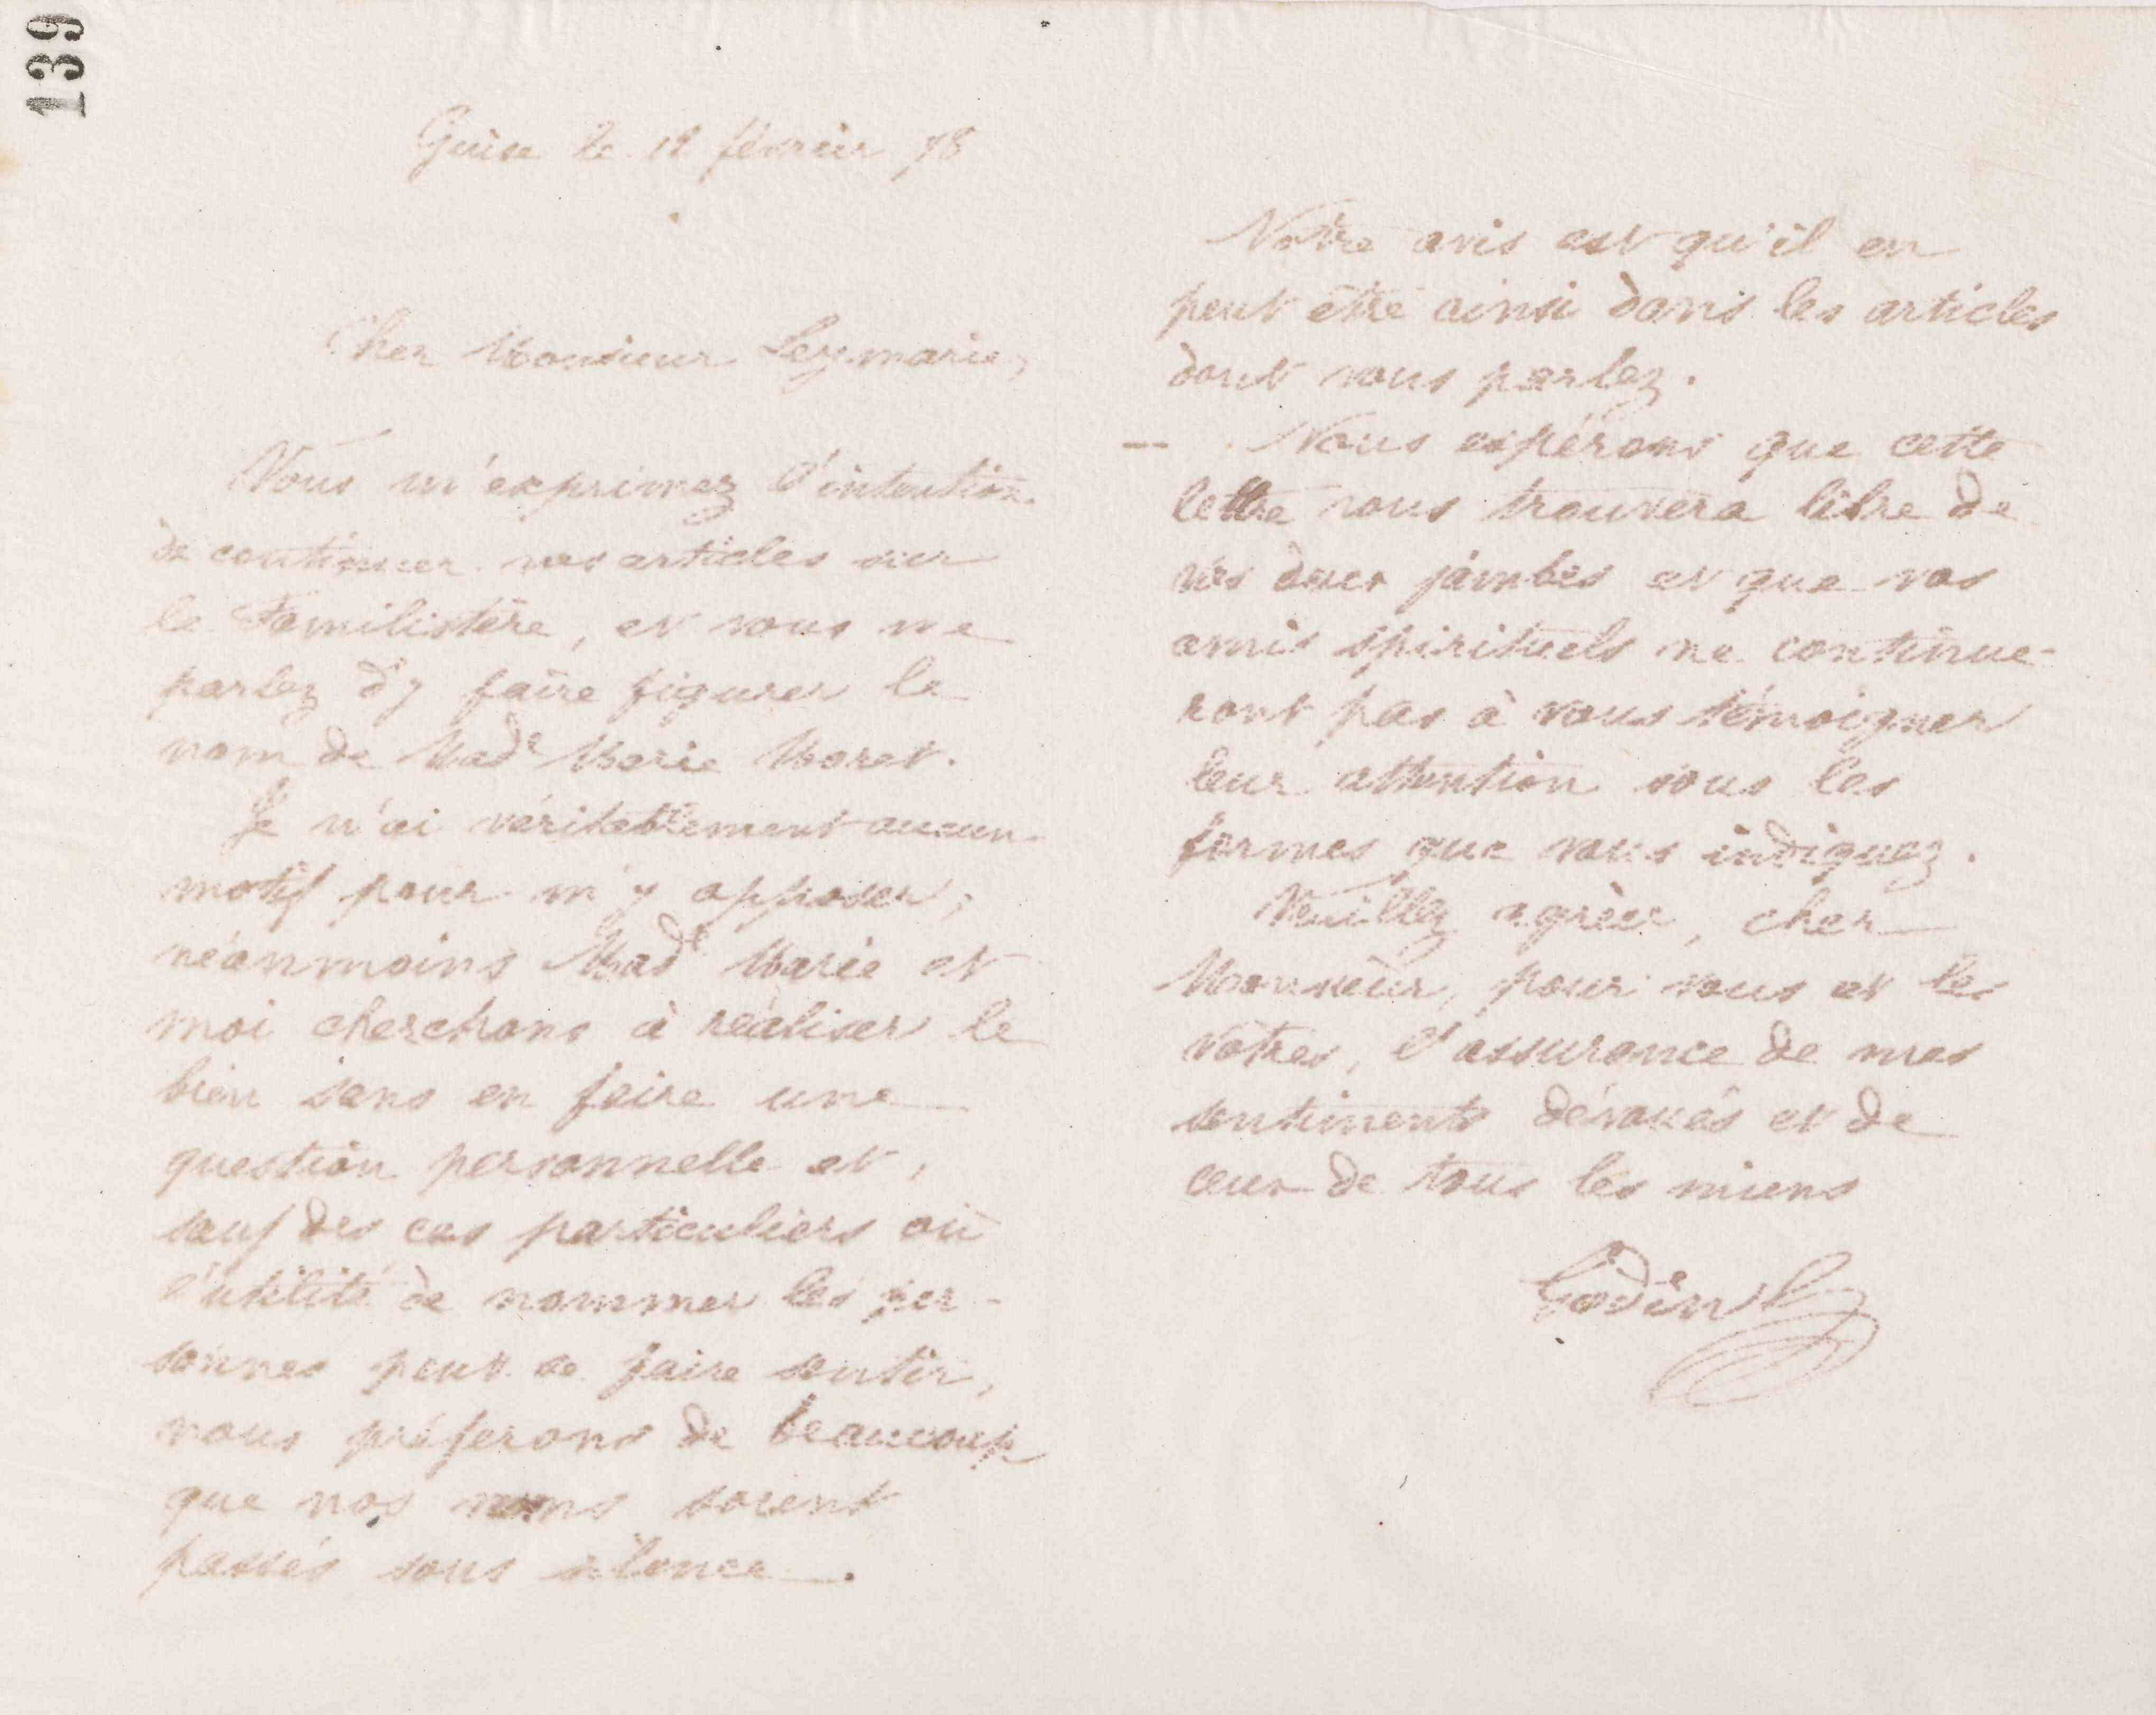 139
Guise le 12 février 78
Cher Monsieur Leymarie,
Vous m'exprimez l'intention
de continuer vos articles sur
le Familistère, et vous me
parlez d'y faire figurer le
nom de Mad.e Marie Moret.
Je n'ai véritablement aucun
motif pour m'y opposer;
néanmoins Mad.e Marie et
moi cherchons à réaliser le
bien sans en faire une
question personnelle et,
sauf des cas particuliers où
l'utilité de nommer les per-
sonnes peut se faire sentir,
nous préférons de beaucoup
que nos noms soient
passés sous silence.
Notre avis est qu'il en
peut être ainsi dans les articles
dont vous parlez.
-- Nous espérons que cette
lettre vous trouvera libre de
vos deux jambes et que vos
amis spirituels ne continue-
ront pas à vous témoigner
leur attention sous les
formes que vous indiquez.
Veuillez agréer, cher
Monsieur, pour vous et les
vôtres, l'assurance de mes
sentiments dévoués et de
ceux de tous les miens
Godin